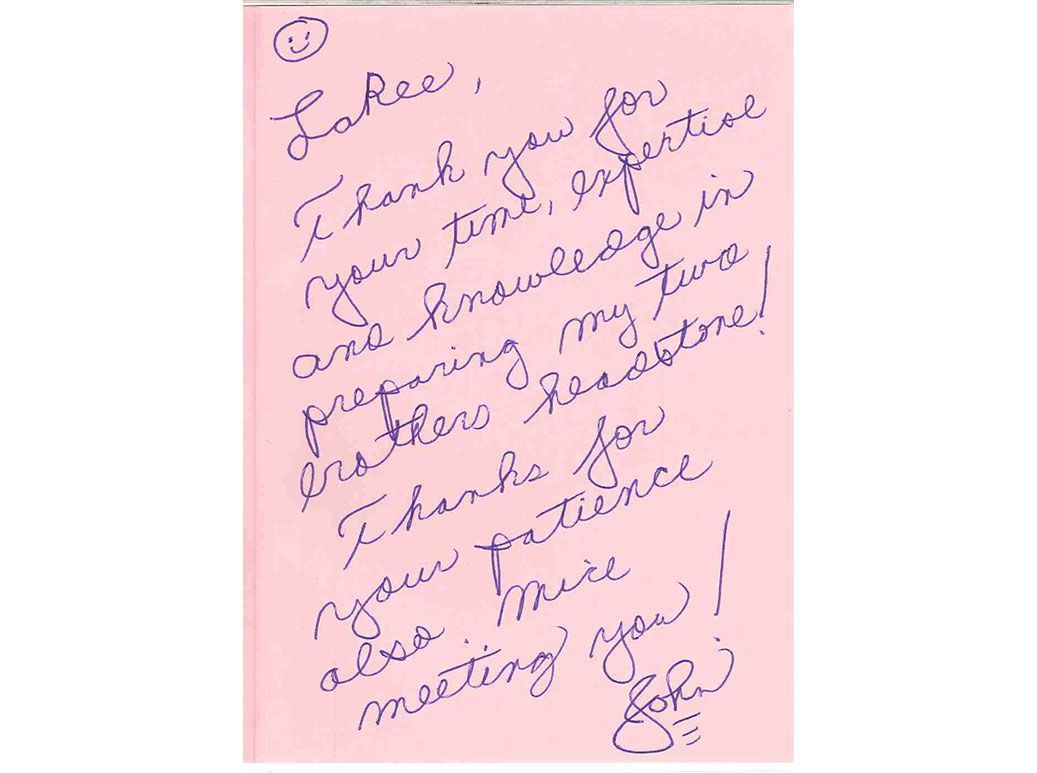 LaRee,
Thank you for
your time, expertise
and knowledge in
preparing my two
brothers headstone!
Thanks for
your patience
also. Nice
meeting you!
John